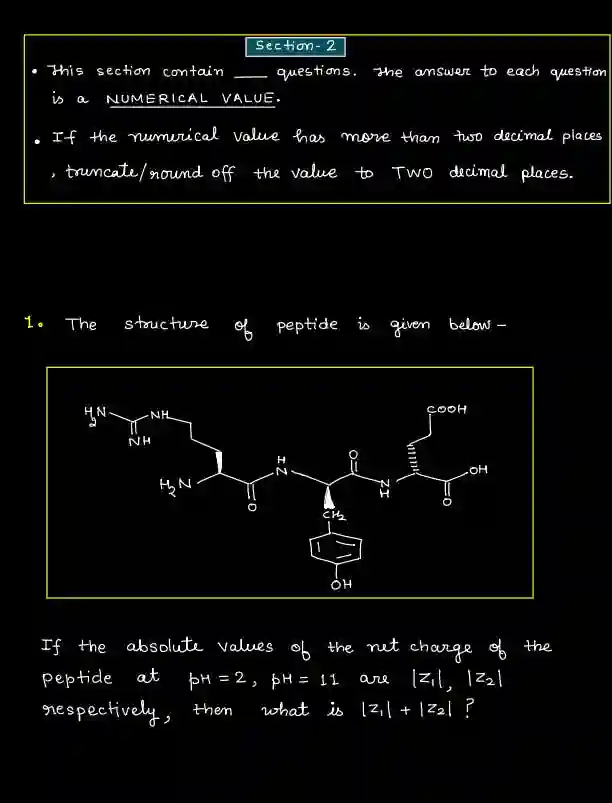 Section-2
• This section contain ___ questions. The answer to each question
is a NUMERICAL VALUE.
• If the numerical value has more than two decimal places
, truncate/round off the value to TWO decimal places.
1. The structure of peptide is given below -
H2N
NH
NH
COOH
H2N
H
N
O
O
N
H
OH
O
CH2
OH
If the absolute values of the net charge of the
peptide at pH = 2, pH = 11 are |Z1|, |Z2|
respectively, then what is |Z1| + |Z2| ?